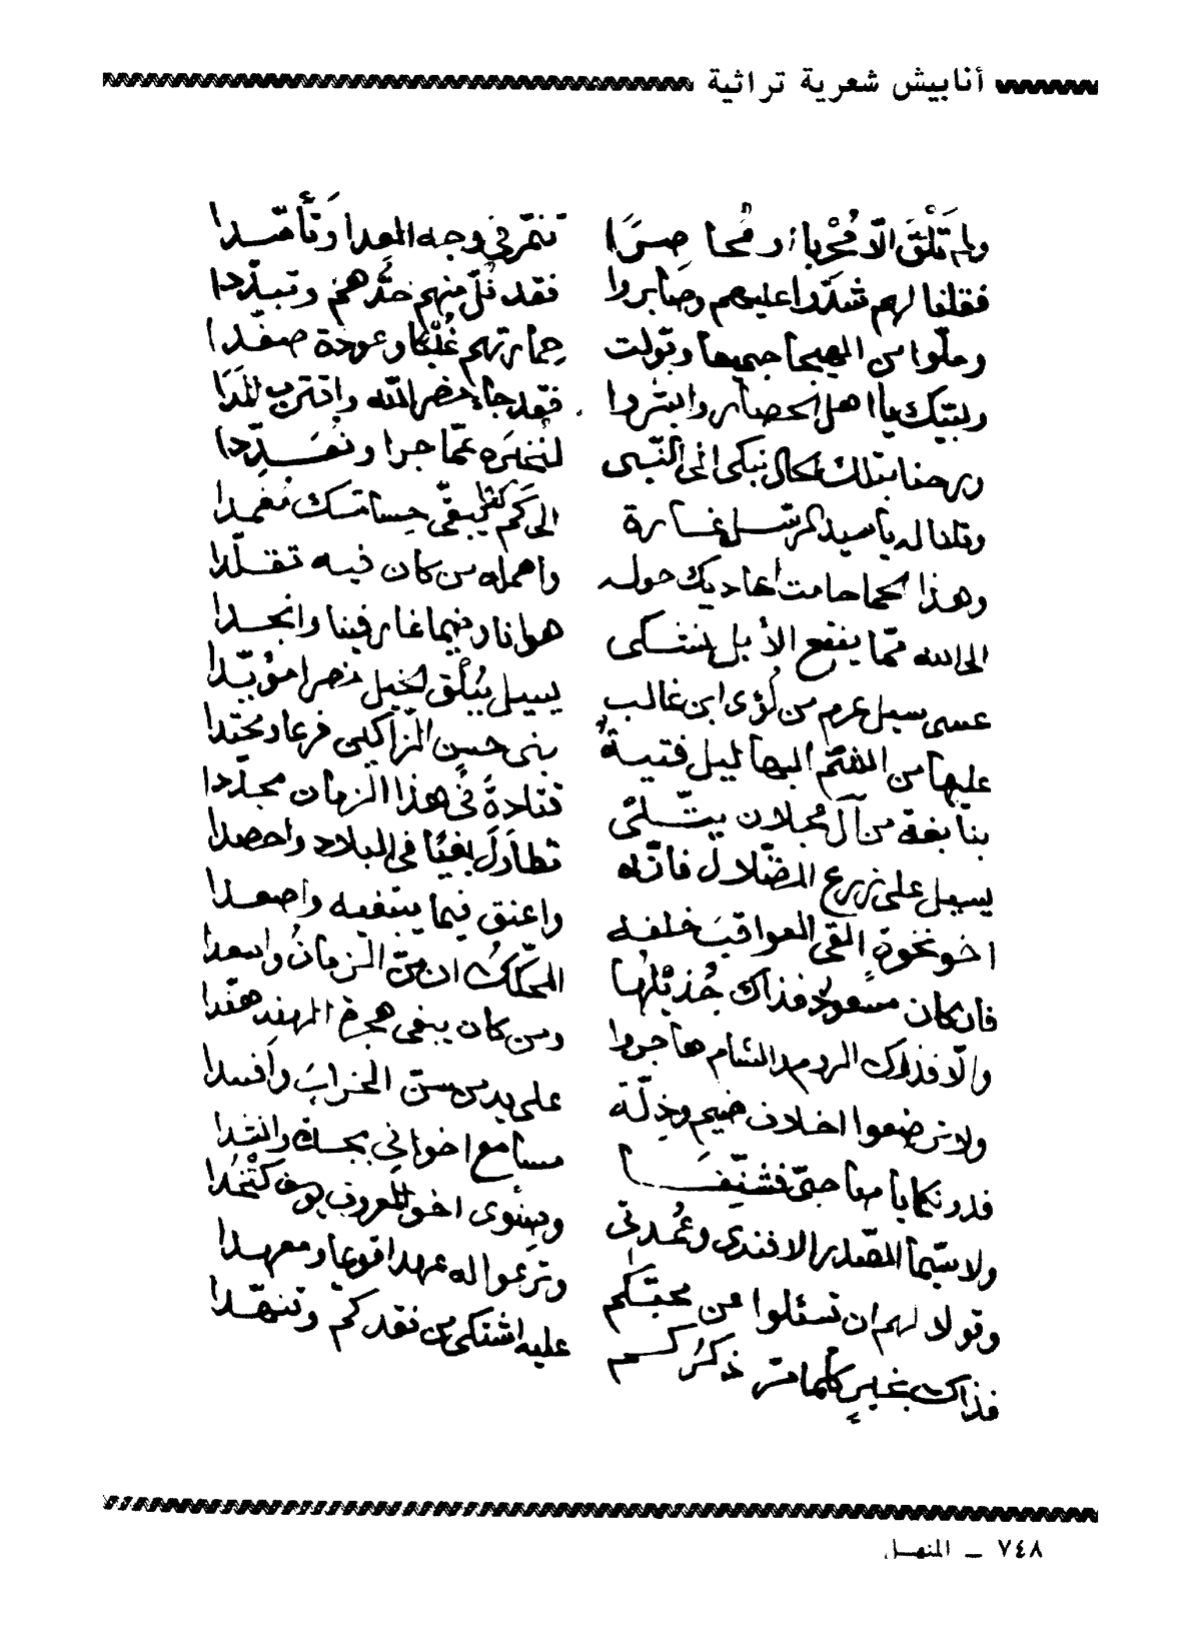 أنابيش شعرية تراثية
ولم تلق الّا محربا ومحا تنمّر في وجه العدا وتأسّدا
فقلنا لهم شدّوا عليهم وصابروا فقد فُلّ منهم حدّهم وتبدّدا
وخلّوا من الهيجا جميعا وتولت
ولبتيك يا اهل وابشروا فقد جاء نصر الله واقترب للندا
ورحنا بتلك الحال نبكى الى النّبى لنخبره عمّا جرا ونعدّدا
وقلنا له يا سيد الرسل غارة الى كم يبقى حسامك مغمدا
وهذا الحما حامت أعاديك حوله واهمله من كان فيه تقلّدا
الى الله ممّا يفقع الأبل نشتكى هوانا غار فينا وانجدا
عسى سيل عرم من لؤى ابن غالب يسيل الخيل نصرا مؤيّدا
عليها من الشمّ البهاليل فتيةٌ بنى حسن الزّاكين فرعا ومحتدا
بنابغة من آل عجلان قتادةً في هذا الزمان مجدّدا
يسيل على زرع الضّلال فانّه تطاول بغيًا فى البلاد واحصدا
اخو نخوة القى العواقب خلفه واعنق فيما يبتغيه واصعدا
فان كان مسعود فذاك جُذيلُها المحكّك ان منّ الزمانُ واسعدا
والّا فذاك الروم والشام هاجروا ومن كان يبغى هجرة الهند هنّدا
ولا ترضعوا اخلاف ضيم وذلّة على يد من سنّ الخراب وأفسدا
فدونكما يا صاحبىّ فشنّفا مسامع اخوانى بجدة وانشدا
ولا سيّما الصّدر الافندى وعُمدتى اخو المعروف يوسف
وقولا لهم ان تسئلوا عن محبّكم وترعوا له عهدا قويما ومعهدا
فذاك بخيرٍ كلّما مرّ ذكركم عليه اشتكى من فقدكم وتنهّدا
٧٤٨ – المنهل